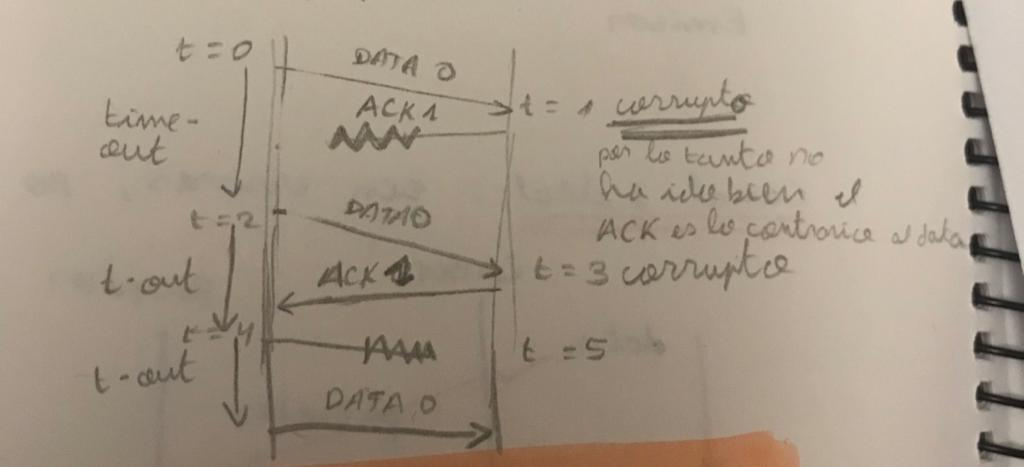 t = 0
DATA 0
time-
out
ACK 1
t = 1 corrupto
por lo tanto no
ha ido bien el
ACK es lo contrario al data
t = 2
DATA 0
t-out
ACK 1
t = 3 corrupto
t = 4
t = 5
t-out
DATA 0